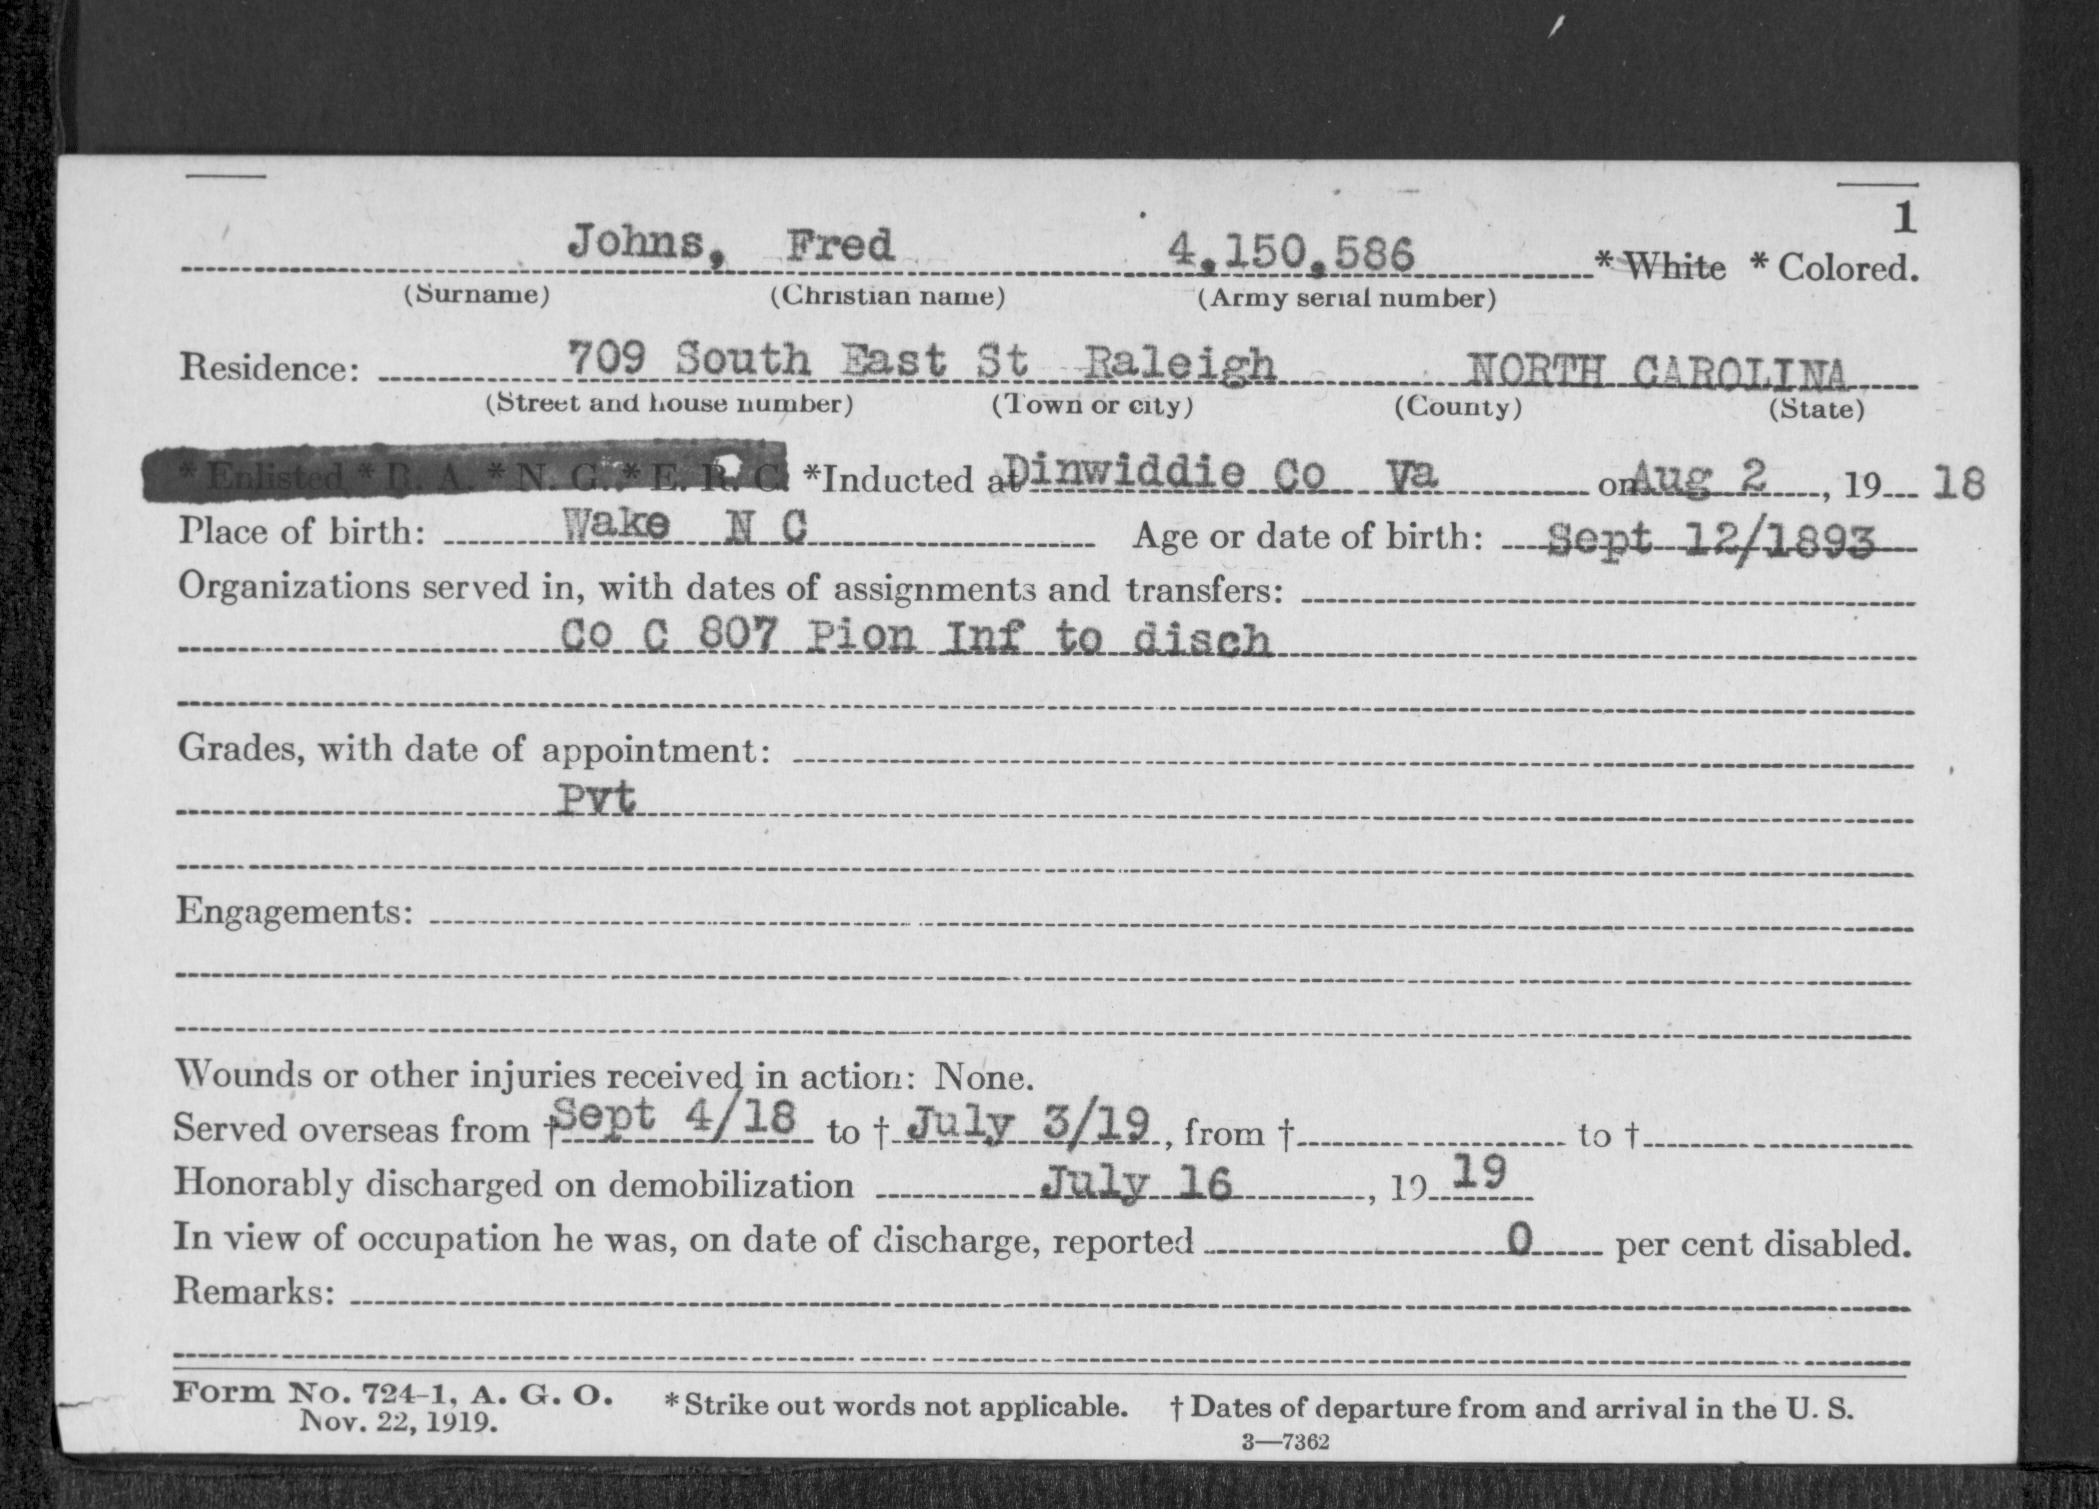 1
Johns, Fred 4,150,586 * White * Colored.
(Surname) (Christian name) (Army serial number)
Residence: 709 South East St Raleigh NORTH CAROLINA
(Street and house number) (Town or city) (County) (State)
* Enlisted * R. A. * N. G. * E. R. C. *Inducted at Dinwiddie Co Va on Aug 2, 19 18
Place of birth: Wake N C Age or date of birth: Sept 12/1893
Organizations served in, with dates of assignments and transfers:
Co C 807 Pion Inf to disch
Grades, with date of appointment:
Pvt
Engagements:
Wounds or other injuries received in action: None.
Served overseas from † Sept 4/18 to † July 3/19, from † to †
Honorably discharged on demobilization July 16, 19 19
In view of occupation he was, on date of discharge, reported 0 per cent disabled.
Remarks:
Form No. 724-1, A. G. O. *Strike out words not applicable. † Dates of departure from and arrival in the U. S.
Nov. 22, 1919.
3—7362